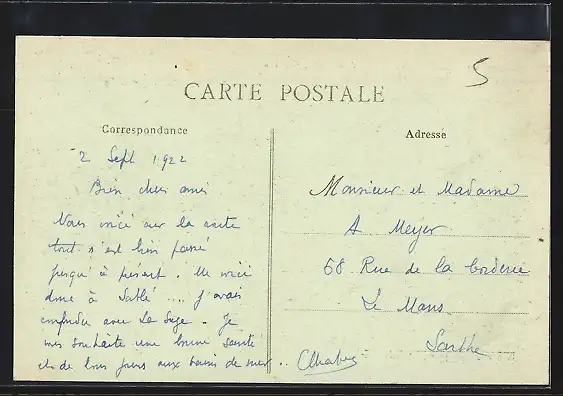 5
CARTE POSTALE
Correspondance
2 Sept 1922
Bien chers amis
Nous voici sur la route
tout s'est bien passé
jusqu'à présent. Me voici
donc à Sablé .... j'avais
confondu avec La Suze. Je
vous souhaite une bonne santé
et de bons jours aux bains de mer..
Adresse
Monsieur et Madame
A Meyer
68 Rue de la
Le Mans
Sarthe